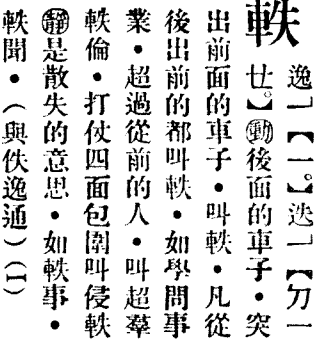 軼
逸﹁【ㄧ。】迭﹁【ㄉㄧ
ㄝ。】動後面的車子・突
出前面的車子・叫軼・凡從
後出前的都叫軼・如學問事
業・超過從前的人・叫超羣
軼倫・打仗四面包圍叫侵軼
靜是散失的意思・如軼事・
軼聞・（與佚逸通）（I）